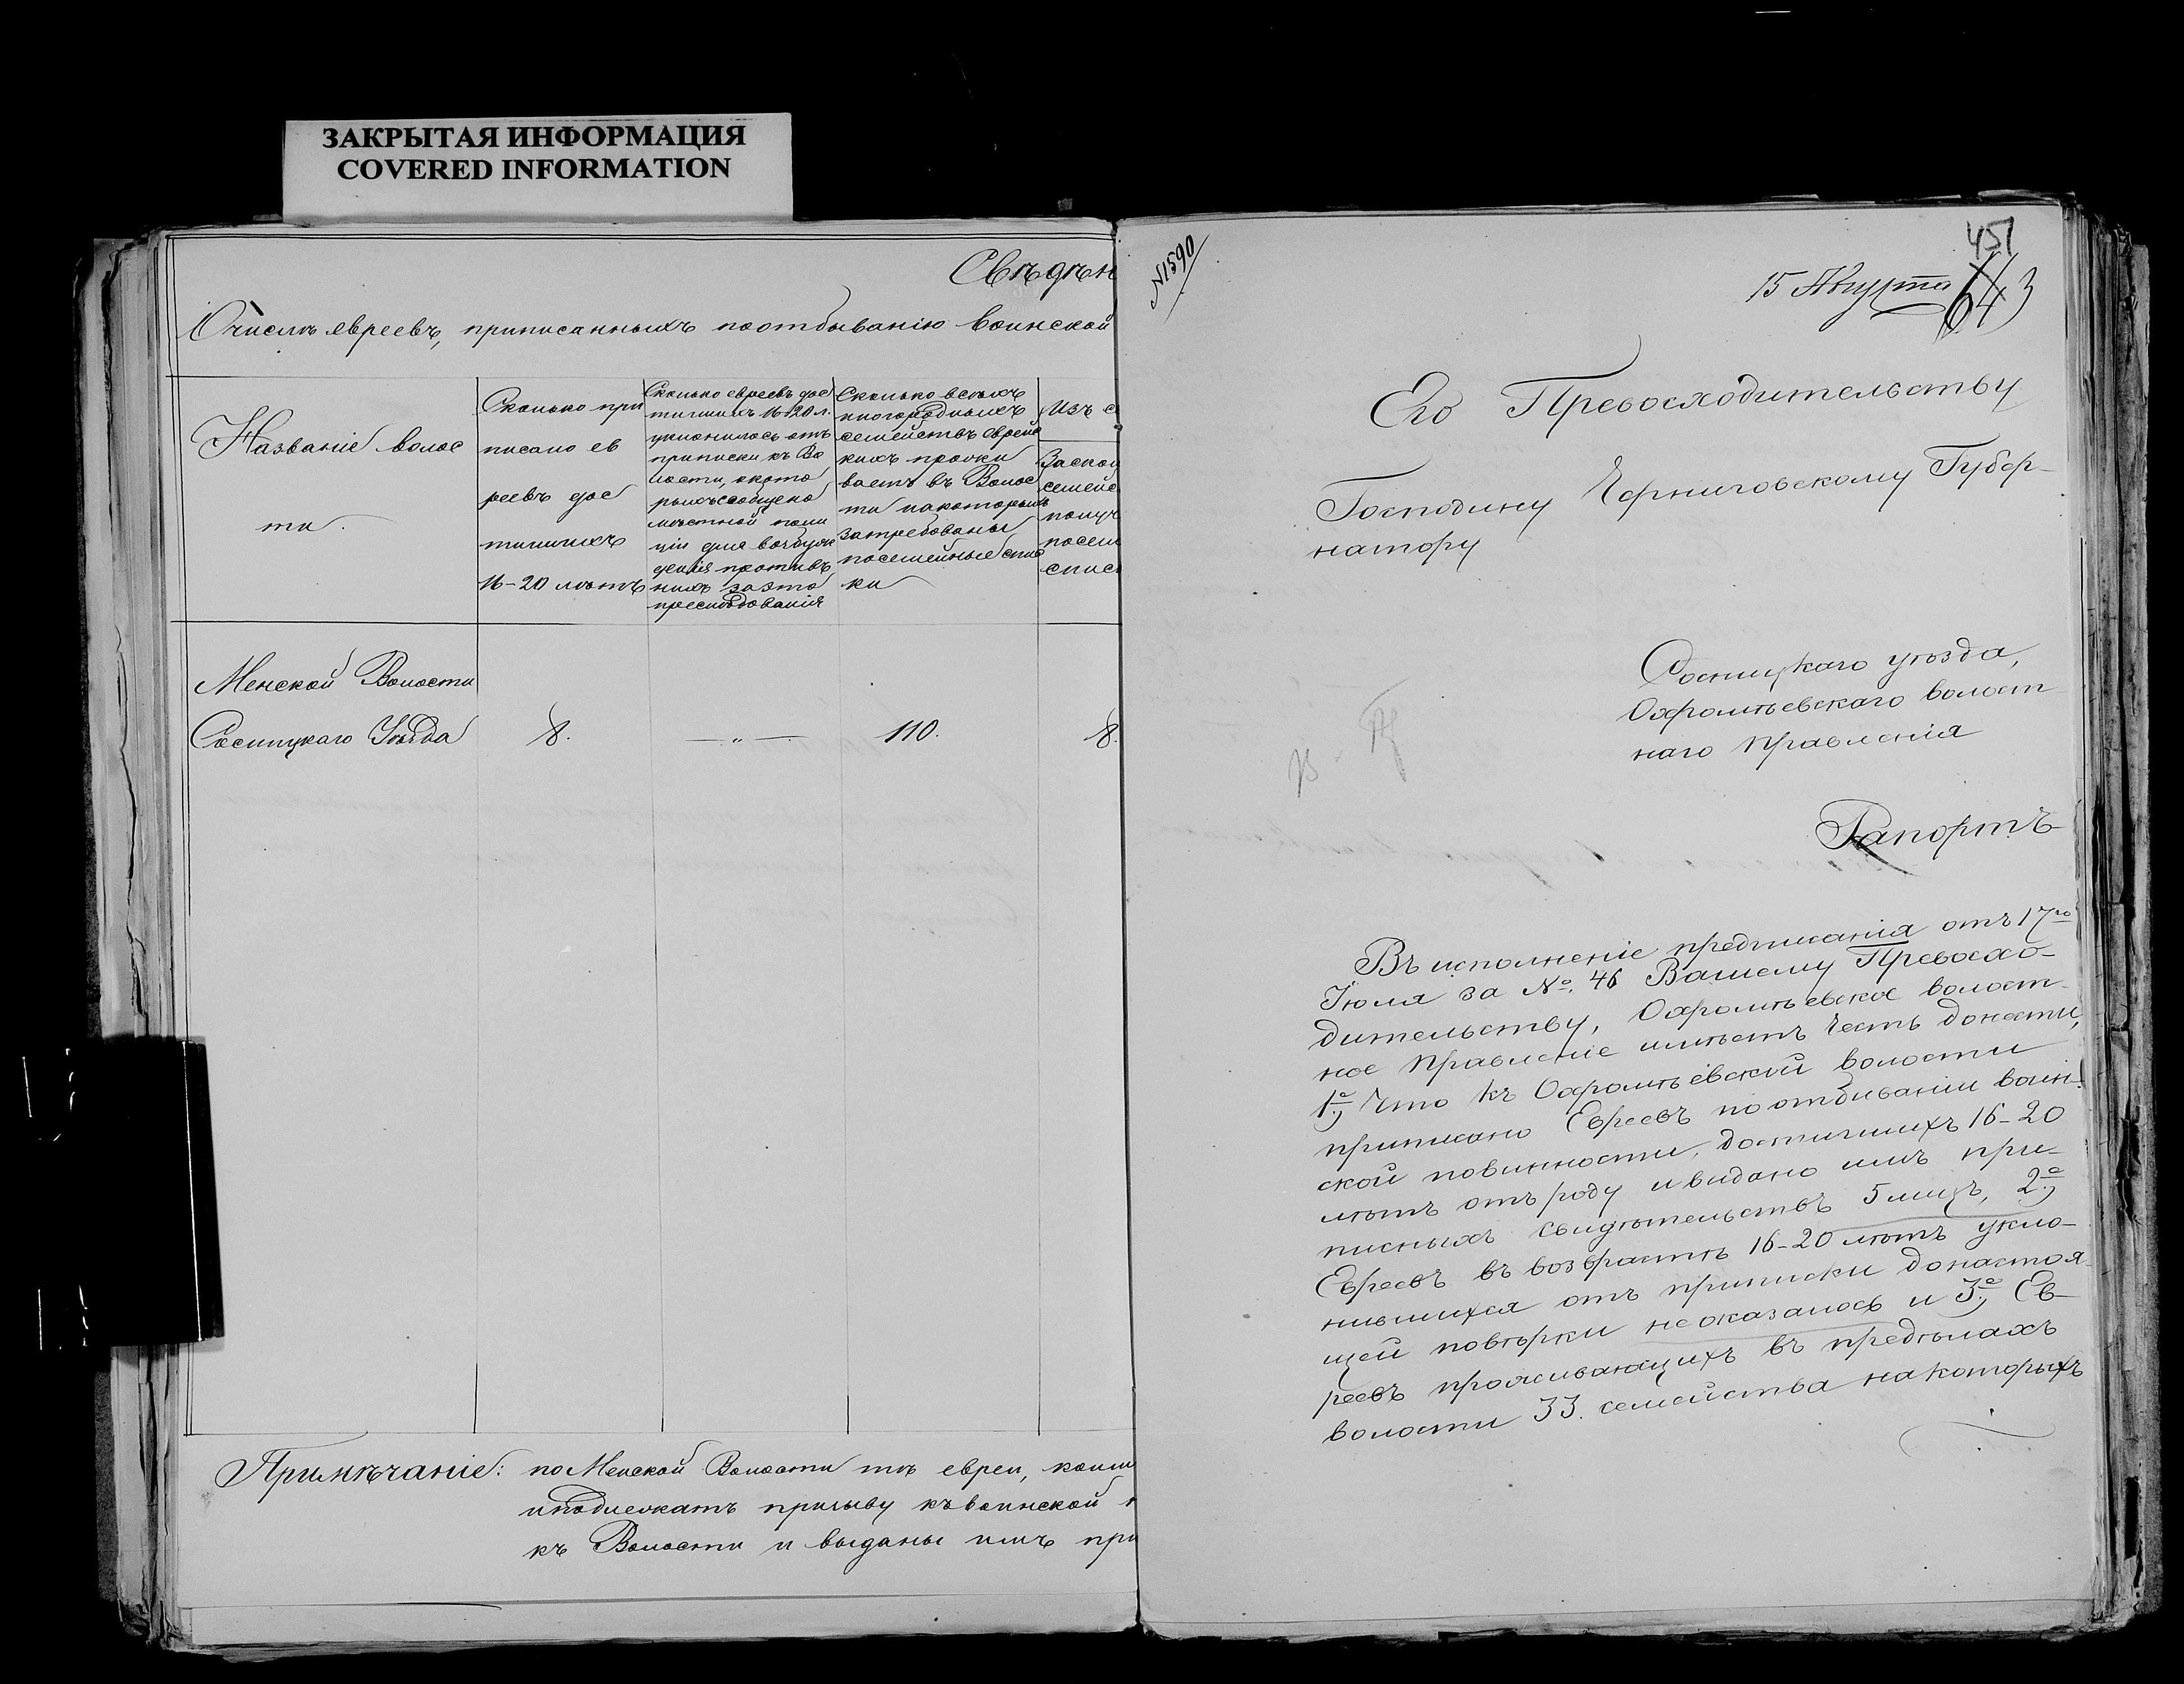 ЗАКРЫТАЯ ИНФОРМАЦИЯ
COVERED INFORMATION
Свѣдѣн
О числѣ евреевъ, приписанныхъ по отбыванію воинской
Названіе волос
ти.
Сколько при
писано ев
реевъ дос
тигшихъ
16-20 лѣтъ
Сколько евреевъ дос
тигшихъ 16-20 л.
уклонилось отъ
приписки къ Во
лости, о кото
рыхъ сообщено
мѣстной поли
ціи для возбуж
денія противъ
нихъ за это
преслѣдованія
Сколько всѣхъ
иногородныхъ
семействъ еврейс
кихъ прожи
ваетъ въ Волос
ти на которыхъ
затребованы
посемейные спис
ки
Изъ с
За скол
семейс
получ
посем
спис
Менской Волости
Сосницкаго Уѣзда
8.
— „ —
110.
8.
Примѣчаніе: по Менской Волости тѣ евреи, коим
и подлежатъ призыву къ воинской
къ Волости и выданы имъ при
N 1590
451
15 Августа
643
Его Превосходительству
Господину Черниговскому Губер-
натору
Сосницкаго уѣзда,
Охромѣевскаго волост
наго Правленія
Рапортъ
Въ исполненіе предписанія отъ 17го
Іюля за №. 46 Вашему Превосхо-
дительству, Охромѣевское волост-
ное Правленіе имѣетъ честь донести,
1е, Что къ Охромѣевской волости
приписано Евреевъ по отбиваніи воин-
ской повинности, достигшихъ 16-20
лѣтъ отъ роду и видано имъ при-
писныхъ свидѣтельствъ 5 лицъ, 2е,
Евреевъ въ возврастѣ 16-20 лѣтъ укло-
нившихся отъ приписки до настоя-
щей повѣрки не оказалось и 3е, Ев-
реевъ проживающихъ въ предѣлахъ
волости 33. семейства на которыхъ